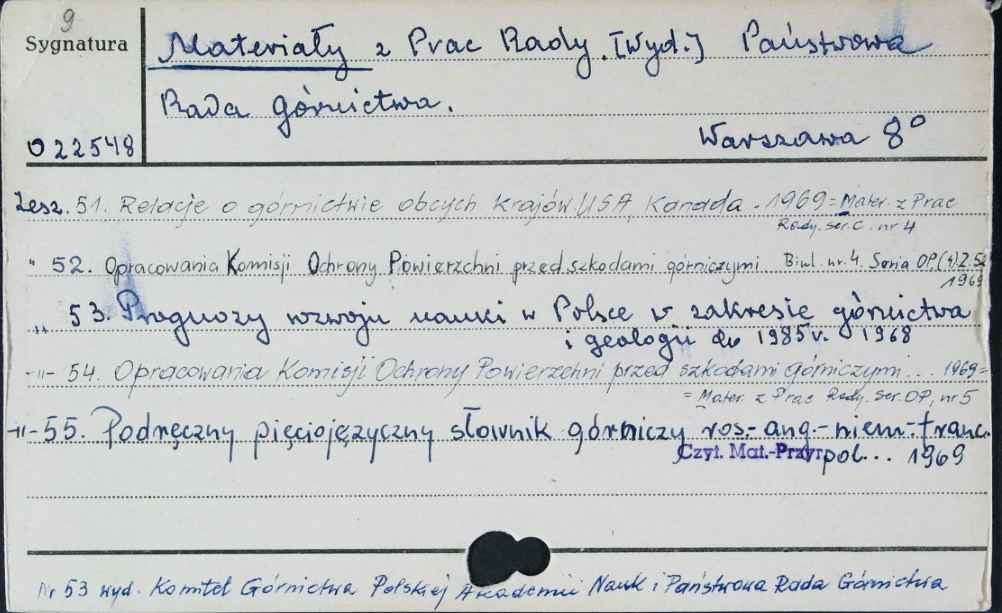 9
Sygnatura
Materiały z Prac Rady. [Wyd.] Państwowa
Rada Górnictwa.
022548
Warszawa 8°
Zesz. 51. Relacje o górnictwie obcych krajów. USA, Kanada. 1969 = Mater. z Prac
Rady. Ser.C. nr 4
" 52. Opracowania Komisji Ochrony Powierzchni przed szkodami górniczymi Biul. nr. 4. Seria OP, (4) Z. 52
1969
" 53. Prognozy rozwoju nauki w Polsce w zakresie górnictwa
i geologii do 1985 r. 1968
-"- 54. Opracowania Komisji Ochrony Powierzchni przed szkodami górniczymi... 1969=
= Mater. z Prac Rady. Ser. OP, nr 5
-"- 55. Podręczny pięciojęzyczny słownik górniczy ros.-ang.-niem.-franc.
Czyt. Mat.-Przyr.
pol... 1969
Nr 53 wyd. Komitet Górnictwa Polskiej Akademii Nauk i Państwowa Rada Górnictwa